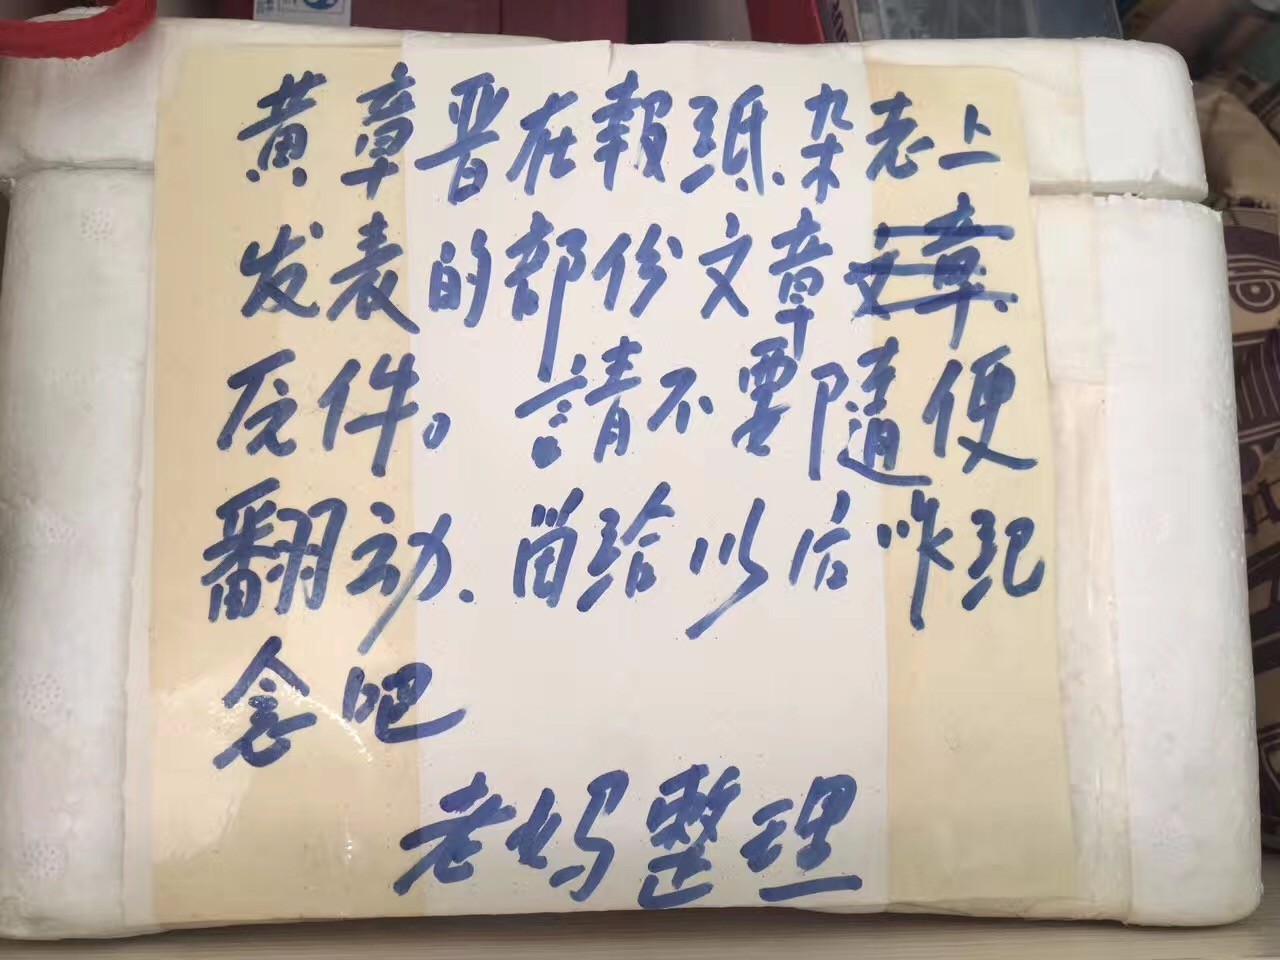 黄章晋在報紙杂志上
发表的部份文章文章
原件。請不要隨便
翻动、留给以后咋纪
念吧
老妈整理